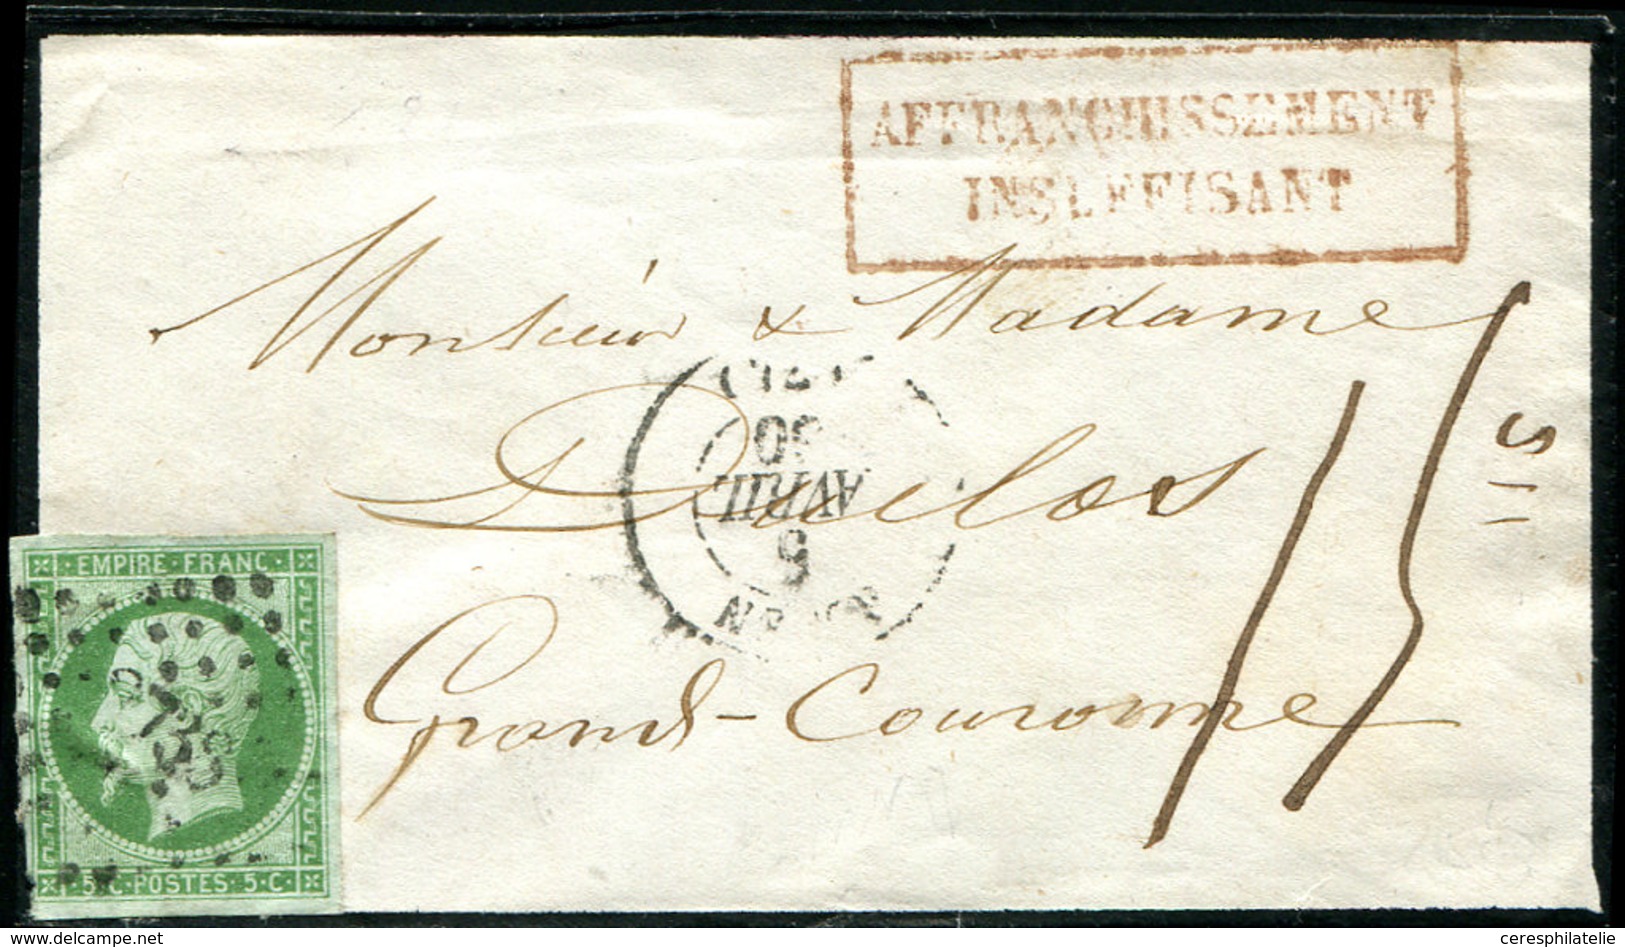 AFFRANCHISSEMENT
INSUFFISANT
Monsieur & Madame
Duclos
Grand-Couronne
15
30
AVRIL
5
EMPIRE·FRANC·
5·C·POSTES·5·C·
delcampe.net
ceresphilatelie